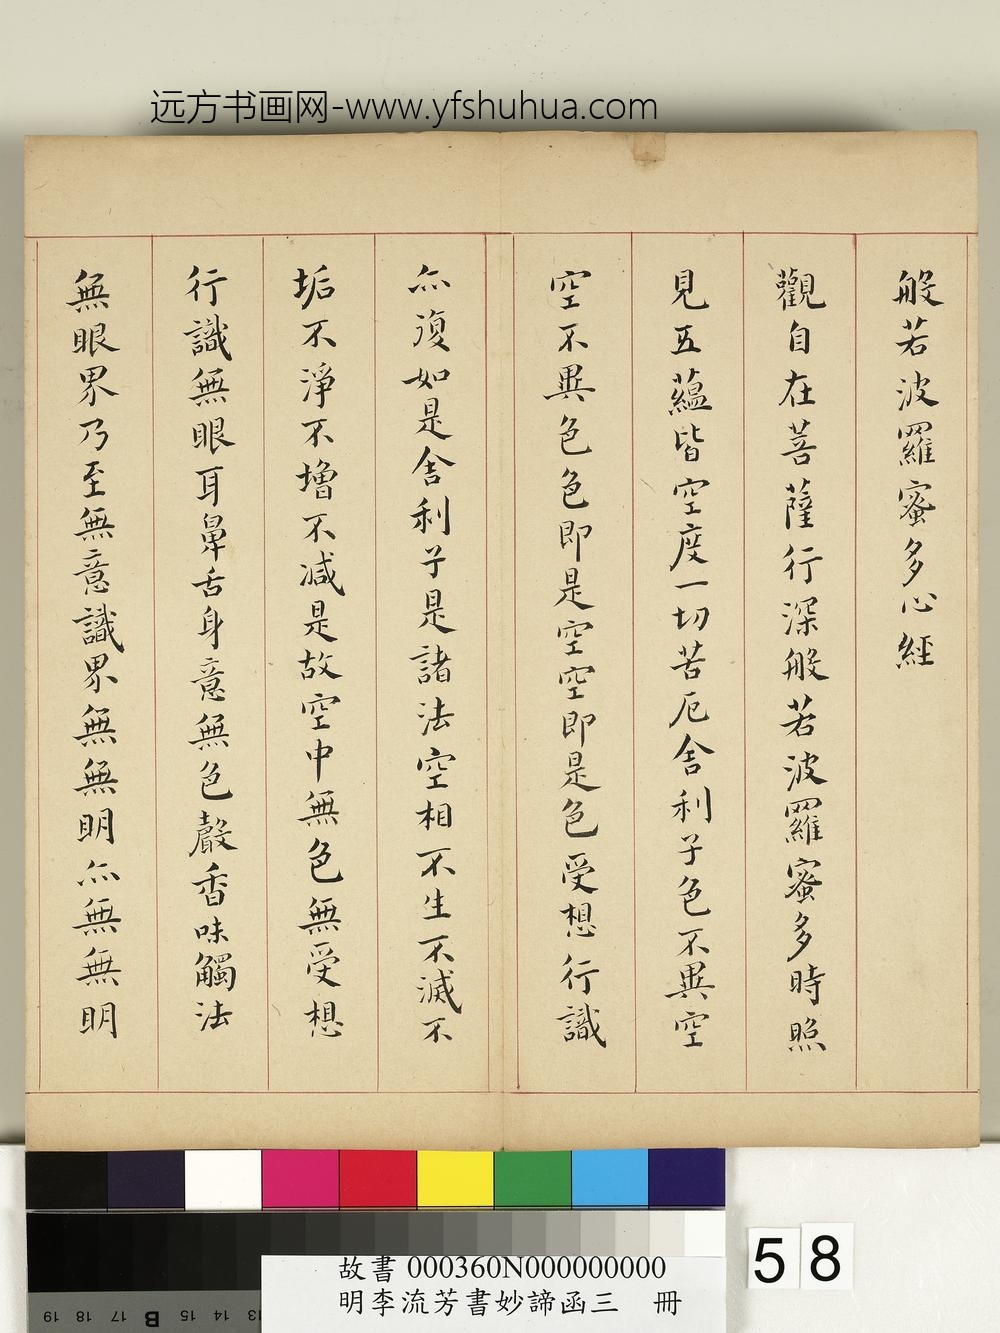 远方书画网-www.yfshuhua.com
般若波羅蜜多心經
觀自在菩薩行深般若波羅蜜多時照
見五蘊皆空度一切苦厄舍利子色不異空
空不異色色即是空空即是色受想行識
亦復如是舍利子是諸法空相不生不滅不
垢不淨不增不減是故空中無色無受想
行識無眼耳鼻舌身意無色聲香味觸法
無眼界乃至無意識界無無明亦無無明
58
故書 000360N000000000
明李流芳書妙諦函三 冊
19 18 17 B 15 14 13